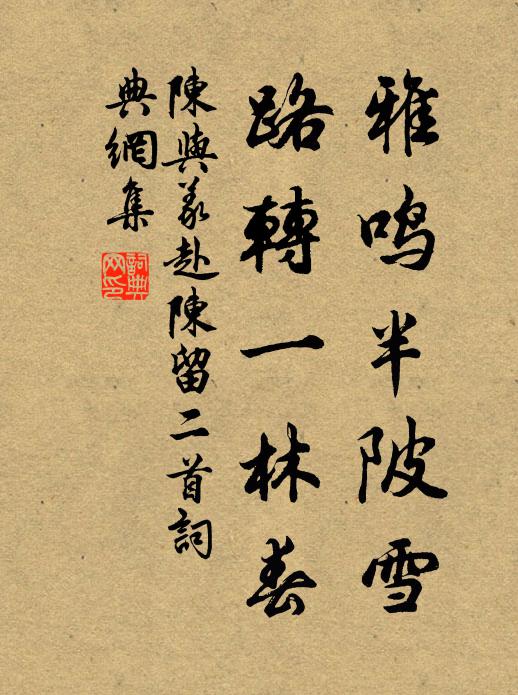 雅鳴半陂雪
路轉一林春
陳與義赴陳留二首詞
典網集
詞典
网印